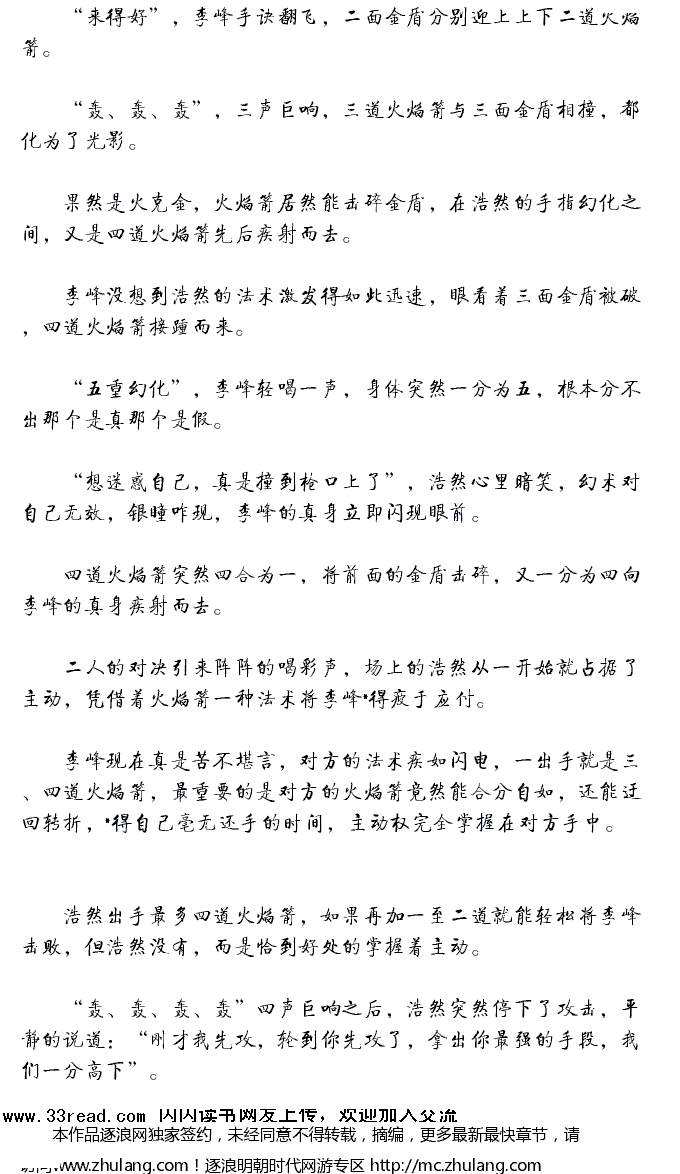 “来得好”，李峰手诀翻飞，二面金盾分别迎上上下二道火焰
箭。
“轰、轰、轰”，三声巨响，三道火焰箭与三面金盾相撞，都
化为了光影。
果然是火克金，火焰箭居然能击碎金盾，在浩然的手指幻化之
间，又是四道火焰箭先后疾射而去。
李峰没想到浩然的法术激发得如此迅速，眼看着三面金盾被破
，四道火焰箭接踵而来。
“五重幻化”，李峰轻喝一声，身体突然一分为五，根本分不
出那个是真那个是假。
“想迷惑自己，真是撞到枪口上了”，浩然心里暗笑，幻术对
自己无效，银瞳咋现，李峰的真身立即闪现眼前。
四道火焰箭突然四合为一，将前面的金盾击碎，又一分为四向
李峰的真身疾射而去。
二人的对决引来阵阵的喝彩声，场上的浩然从一开始就占据了
主动，凭借着火焰箭一种法术将李峰*得疲于应付。
李峰现在真是苦不堪言，对方的法术疾如闪电，一出手就是三
、四道火焰箭，最重要的是对方的火焰箭竟然能合分自如，还能迂
回转折，*得自己毫无还手的时间，主动权完全掌握在对方手中。
浩然出手最多四道火焰箭，如果再加一至二道就能轻松将李峰
击败，但浩然没有，而是恰到好处的掌握着主动。
“轰、轰、轰、轰”四声巨响之后，浩然突然停下了攻击，平
静的说道：“刚才我先攻，轮到你先攻了，拿出你最强的手段，我
们一分高下”。
www.33read.com 闪闪读书网友上传，欢迎加入交流
本作品逐浪网独家签约，未经同意不得转载，摘编，更多最新最快章节，请
访问www.zhulang.com！逐浪明朝时代网游专区 http://mc.zhulang.com